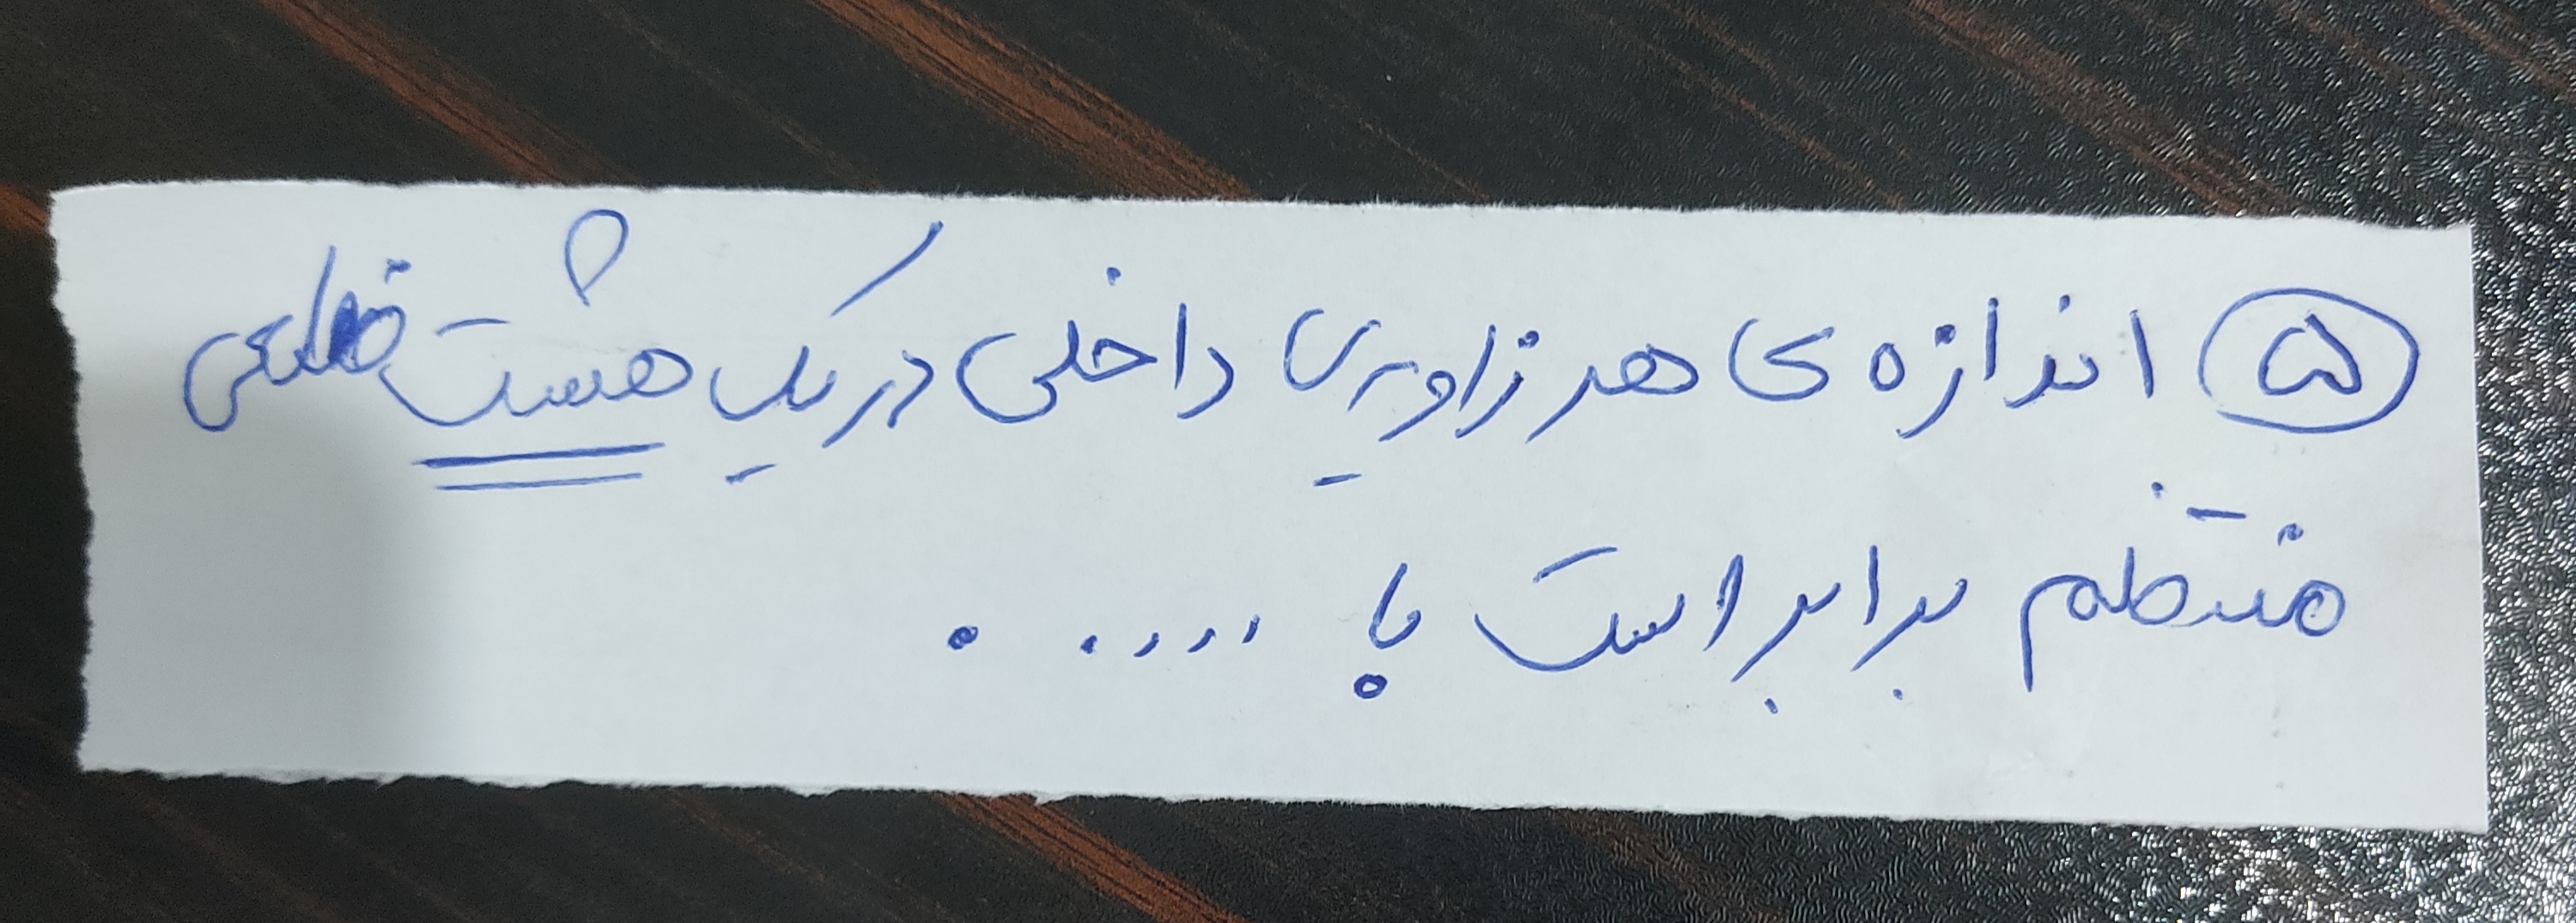 ۵ اندازه ی هر زاویه‌ی داخلی در یک هشت ضلعی
منتظم برابر است با ..... .